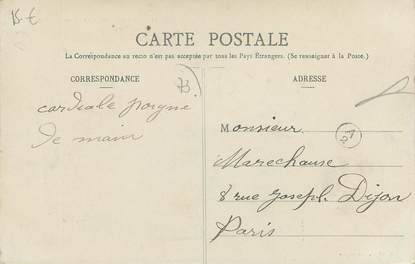 15 €
CARTE POSTALE
La Correspondance au recto n'est pas acceptée par tous les Pays Étrangers. (Se renseigner à la Poste.)
CORRESPONDANCE
ADRESSE
73
cordiale poigné
de main
Monsieur
Marechause
8 rue Joseph. Dijon
Paris